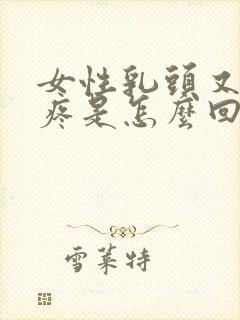 女性乳頭又
疼是怎麼回
雪萊特